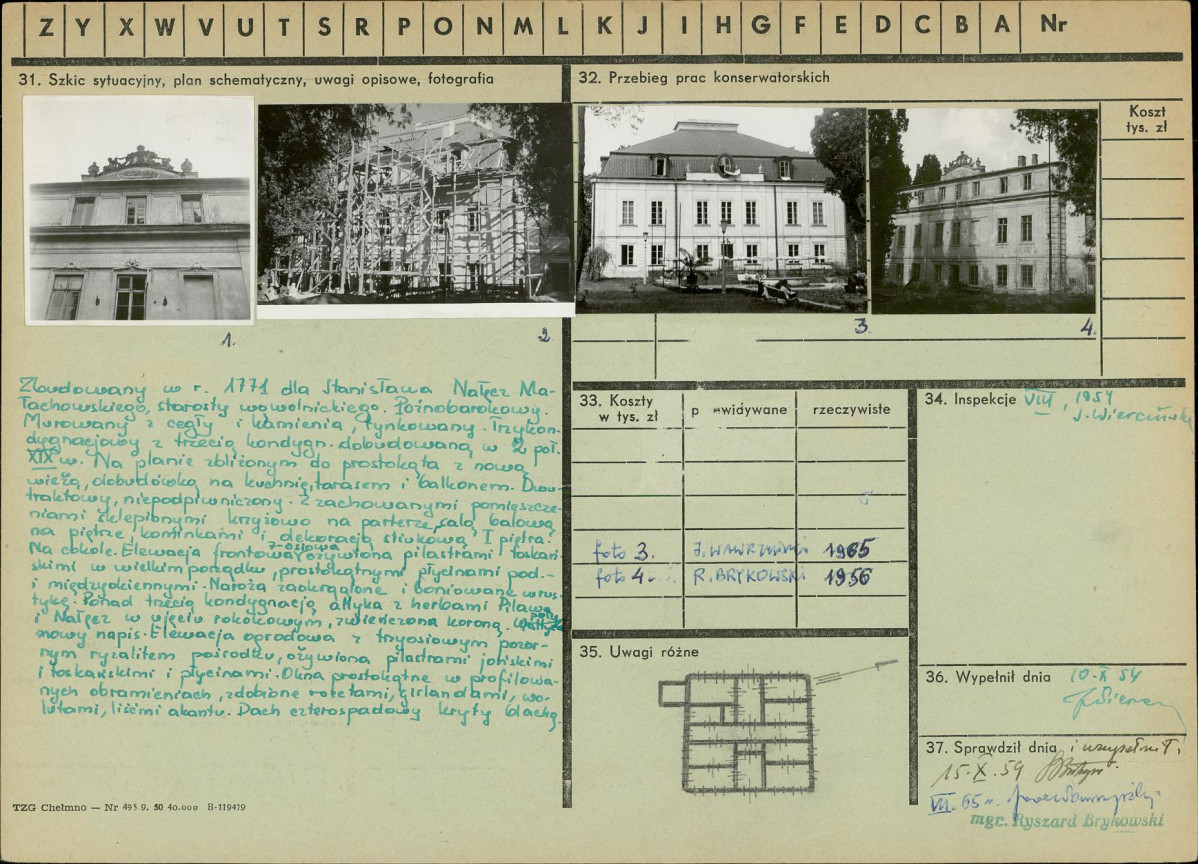 Z Y X W V U T S R P O N M L K J I H G F E D C B A Nr
31. Szkic sytuacyjny, plan schematyczny, uwagi opisowe, fotografia
1.
2
Zbudowany w r. 1771 dla Stanisława Nałęcz Ma-
łachowskiego, starosty wąwolnickiego. Późnobarokowy.
Murowany z cegły i kamienia, tynkowany. Trzykon-
dygnacjowy z trzecią kondygn. dobudowaną w 2 poł.
XIX w. Na planie zbliżonym do prostokąta z nową
wieżą, dobudówką na kuchnię, tarasem i balkonem. Dwu-
traktowy, niepodpiwniczony. Z zachowanymi pomieszcze-
niami sklepionymi krzyżowo na parterze, salą balową
na piętrze, kominkami i dekoracją stiukową I piętra.
Na cokole. Elewacja frontowa 7-osiowa ożywiona pilastrami toskań-
skimi w wielkim porządku, prostokątnymi płycinami pod-
i międzyokiennymi. Naroża zaokrąglone i boniowane w rus-
tykę. Ponad trzecią kondygnacją attyka z herbami Pilawa
i Nałęcz w ujęciu rokokowym, zwieńczona koroną.
nowy napis. Elewacja ogrodowa z trzyosiowym pozor-
nym ryzalitem pośrodku, ożywiona pilastrami jońskimi
i toskańskimi i płycinami. Okna prostokątne w profilowa-
nych obramieniach, zdobione rozetami, girlandami, wo-
lutami, liśćmi akantu. Dach czterospadowy kryty blachą
TZG Chełmno — Nr 495 9. 50 40.000 B-119479
32. Przebieg prac konserwatorskich
Koszt
tys. zł
3.
4.
33. Koszty
w tys. zł
przewidywane
rzeczywiste
foto 3. J. WAWRZYŃSKI 1965
foto 4 R. BRYKOWSKI 1956
34. Inspekcje VIII, 1959
J. Wierciński
35. Uwagi różne
36. Wypełnił dnia 10.X 59
37. Sprawdził dnia i uzupełnił,
15.X.59
VII.65 r.
mgr. Ryszard Brykowski